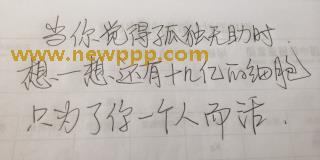 当你觉得孤独无助时,
想一想,还有十几亿的细胞
www.newppp.com
只为了你一个人而活.